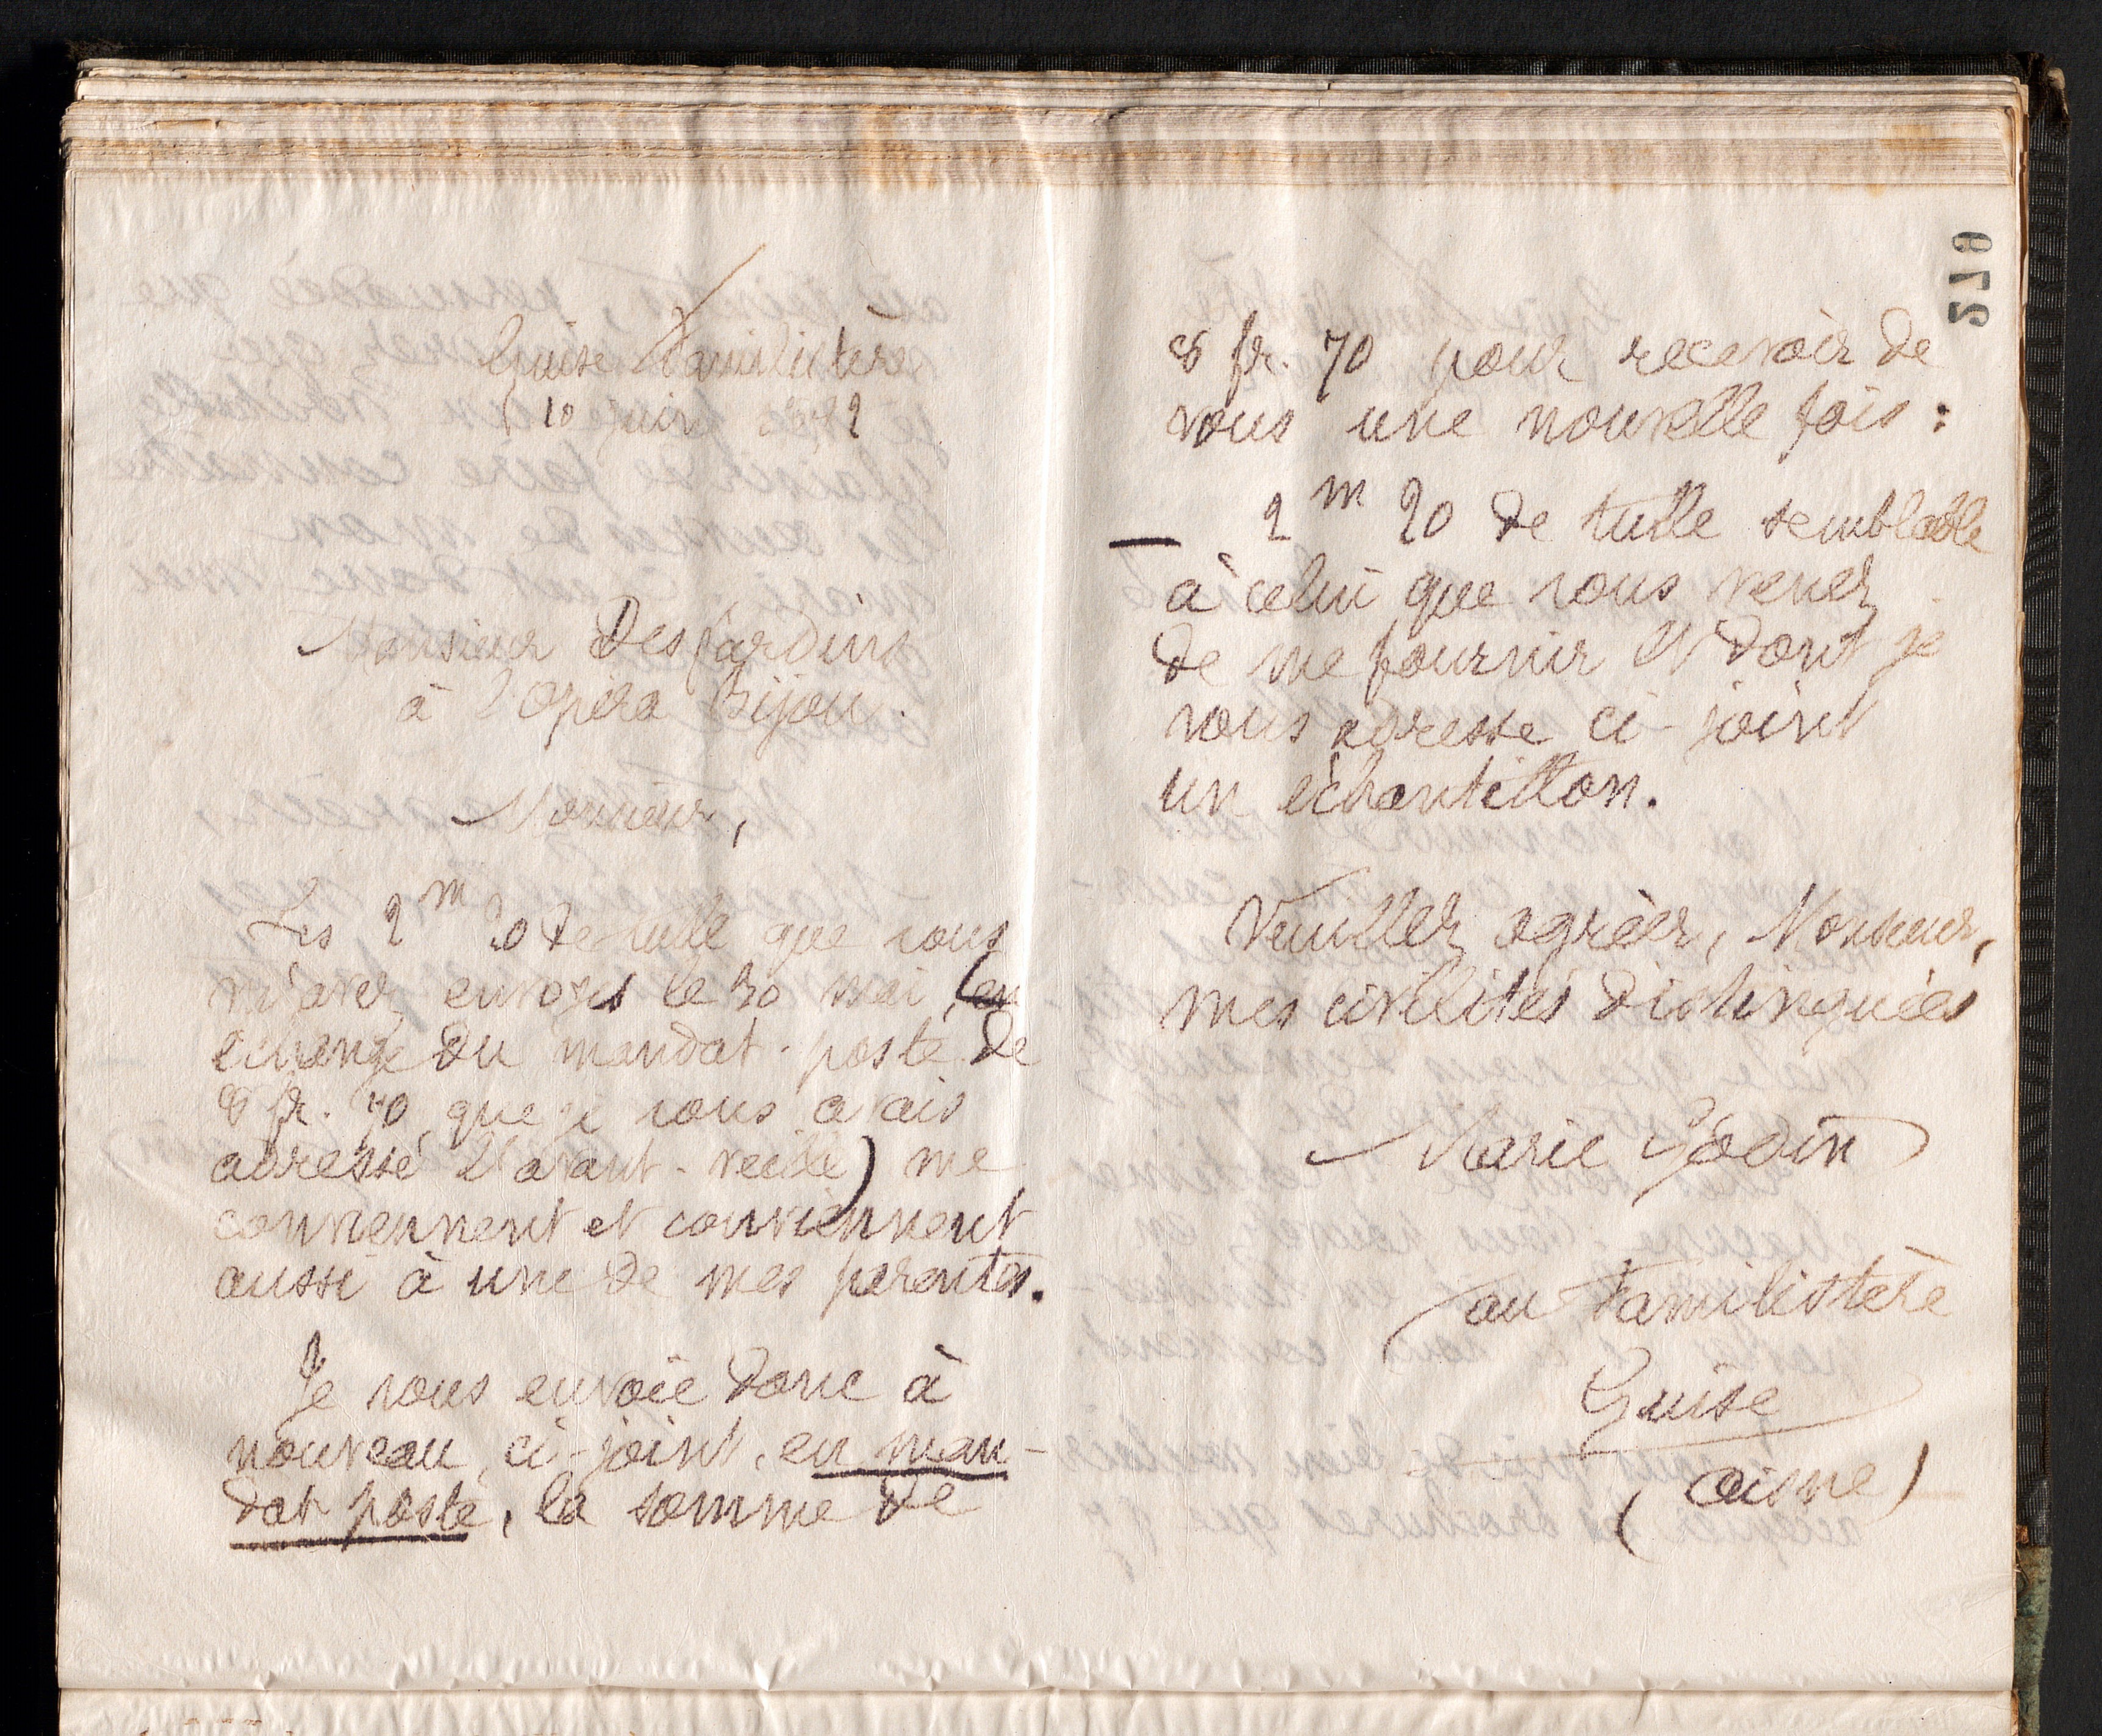 Guise Familistère
10 juin
Monsieur Desjardins
à l'Opéra Bijou.
Monsieur,
Les 2 m 20 de tulle que vous
m'avez envoyés le 30 mai, (en
échange du mandat-poste de
8 fr. 70 que je vous avais
adressé l'avant-veille) me
conviennent et conviennent
aussi à une de mes parentes.
Je vous envoie donc à
nouveau, ci-joint, en man-
dat poste, la somme de
8 fr. 70 pour recevoir de
vous une nouvelle fois :
— 2 m 20 de tulle semblable
à celui que vous venez
de me fournir et dont je
vous adresse ci-joint
un échantillon.
Veuillez agréer, Monsieur,
mes civilités distinguées
Marie Godin
au Familistère
Guise
(Aisne)